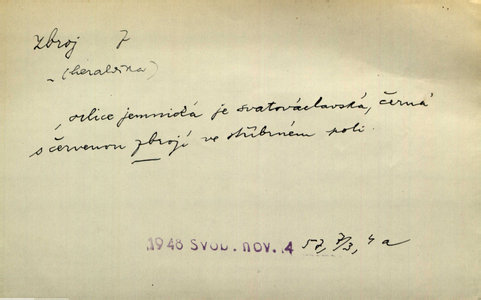 zbroj f
(heraldika)
orlice jemnická je svatováclavská, černá
s červenou zbrojí ve stříbrném poli.
1948 SVOB. NOV. 4 57, 7/3, 4 a